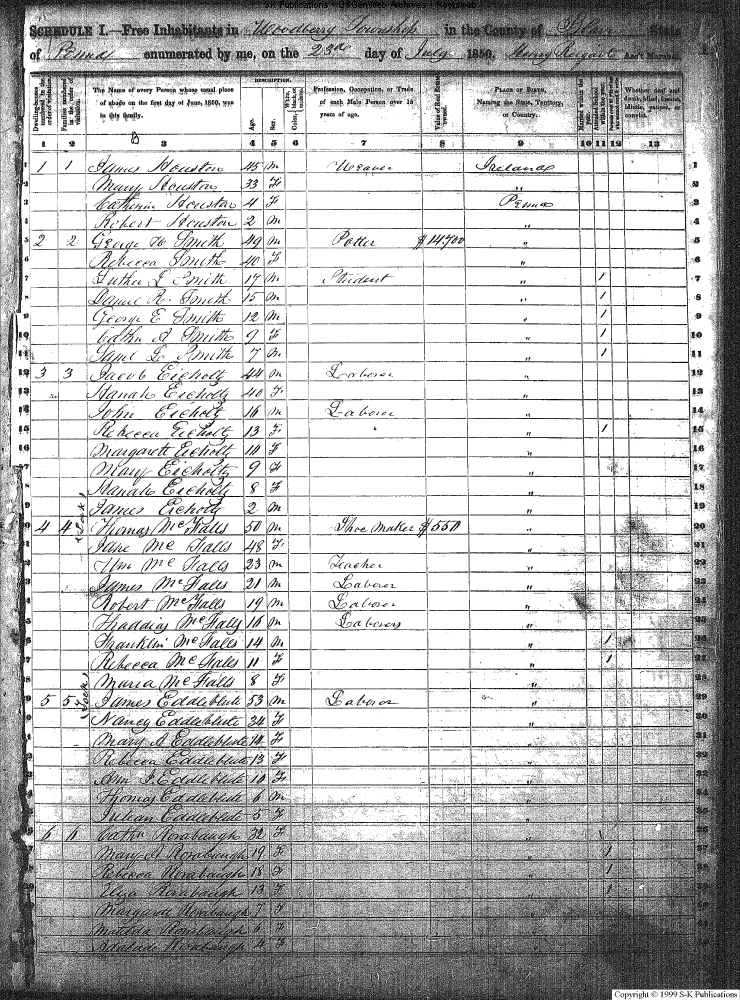 S-K Publications - USGenWeb Archives - Rootsweb
SCHEDULE I.—Free Inhabitants in Woodberry Township in the County of Blair State
of Penna enumerated by me, on the 23rd day of July 1850. Ass't Marshal.
DESCRIPTION.
Dwelling-houses numbered in the order of visitation.
Families numbered in the order of visitation.
The Name of every Person whose usual place of abode on the first day of June, 1850, was in this family.
Age.
Sex.
Color,
Profession, Occupation, or Trade of each Male Person over 15 years of age.
Value of Real Estate owned.
PLACE OF BIRTH, Naming the State, Territory, or Country.
Married within the year.
Whether deaf and dumb, blind, insane, idiotic, pauper, or convict.
1 2 3 4 5 6 7 8 9 10 11 12 13
1 1 1 James Houston 45 m Weaver Ireland 1
2 Mary Houston 33 F " 2
3 Catherine Houston 4 F Penna 3
4 Robert Houston 2 m " 4
5 2 2 George W Smith 49 m Potter $14,700 " 5
6 Rebecca Smith 40 F " 6
7 Luther L Smith 17 m Student " 1 7
8 Daniel R. Smith 15 m " 1 8
9 George E Smith 12 m " 1 9
10 Cathn A Smith 9 F " 1 10
11 Saml L Smith 7 m " 1 11
12 3 3 Jacob Eicholtz 44 m Laborer " 12
13 Hanah Eicholtz 40 F " 13
14 John Eicholtz 16 m Laborer " 14
15 Rebecca Eicholtz 13 F " 1 15
16 Margarett Eicholtz 10 F " 16
17 Mary Eicholtz 9 F " 17
18 Hanah Eicholtz 8 F " 18
19 James Eicholtz 2 m " 19
20 4 4 Thomas McFalls 50 m Shoe Maker $550 " 20
21 Jane McFalls 48 F " 21
22 Wm McFalls 23 m Teacher " 22
23 James McFalls 21 m Laborer " 23
24 Robert McFalls 19 m Laborer " 24
25 Thaddias McFalls 16 m Laborer " 25
26 Franklin McFalls 14 m " 1 26
27 Rebecca McFalls 11 F " 1 27
28 Maria McFalls 8 F " 28
29 5 5 James Eddleblute 53 m Laborer " 29
30 Nancy Eddleblute 34 F " 30
Mary A Eddleblute 14 F "
Rebecca Eddleblute 13 F "
Ann Eddleblute 10 F "
Thomas Eddleblute 6 m "
Julian Eddleblute 5 F "
6 6 Cathn Rorabaugh 32 F "
Mary A Rorabaugh 19 F " 1
Rebecca Rorabaugh 18 F " 1
Eliza Rorabaugh 13 F " 1
Margarett Rorabaugh F "
Matilda Rorabaugh 6 F "
Adalade Rorabaugh 4 F "
Copyright © 1999 S-K Publications